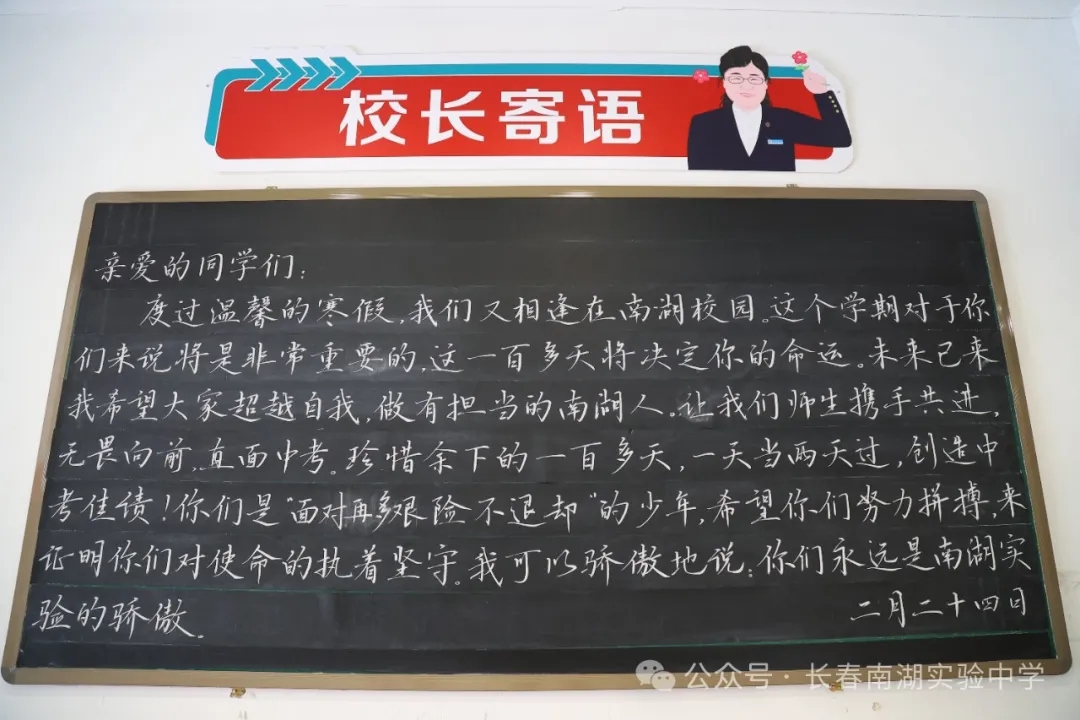 校长寄语
亲爱的同学们：
度过温馨的寒假，我们又相逢在南湖校园。这个学期对于你
们来说将是非常重要的，这一百多天将决定你的命运。未来已来
我希望大家超越自我，做有担当的南湖人。让我们师生携手共进，
无畏向前，直面中考。珍惜余下的一百多天，一天当两天过，创造中
考佳绩！你们是“面对再多艰险不退却”的少年，希望你们努力拼搏，来
证明你们对使命的执着坚守。我可以骄傲地说：你们永远是南湖实
验的骄傲．
二月二十四日
公众号·长春南湖实验中学